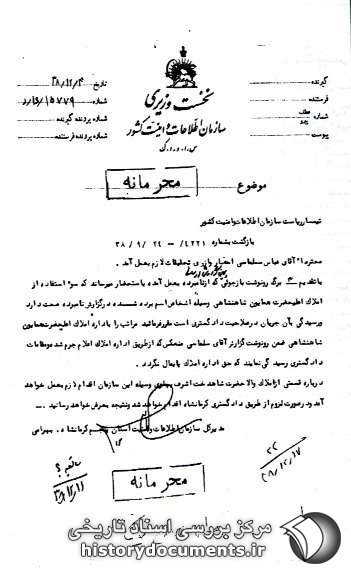 گیرنده
فرستنده
پیوست
نخست وزیری
سازمان اطلاعات و امنیت کشور
س.ا.و.ا.ک
تاریخ
شماره
شماره پرونده گیرنده
شماره پرونده فرستنده
موضوع
محرمانه
تیمسار ریاست سازمان اطلاعات و امنیت کشور
بازگشت بشماره ۴۲۲۱/- ۲۴ / ۹ / ۳۸
محترما آقای عباس سلماسی احضار و از وی تحقیقات لازم بعمل آمد.
با تقدیم ۴ برگ رونوشت بازجوئی که از نامبرده بعمل آمده باستحضار میرساند که سوء استفاده از
املاک اعلیحضرت همایون شاهنشاهی وسیله اشخاص اسم برده شده در گزارش نامبرده صحت دارد
و رسیدگی بآن جریان در صلاحیت دادگستری است علیهذا مراتب را باداره املاک اعلیحضرت همایون
شاهنشاهی ضمن رونوشت گزارش آقای سلماسی منعکس که از طریق اداره املاک اعلام جرم شد و مقامات
دادگستری رسیدگی نمایند که حق اداره املاک پایمال نگردد.
درباره قسمتی از املاک والاحضرت شاهدخت اشرف پهلوی وسیله این سازمان اقدام لازم بعمل خواهد
آمد و در صورت لزوم از طریق دادگستری کرمانشاه اقدام خواهد شد و نتیجه بعرض خواهد رسانید.
مدیر کل سازمان اطلاعات و امنیت استان پنجم کرمانشاه. بهرامی
محرمانه
مرکز بررسی اسناد تاریخی
historydocuments.ir